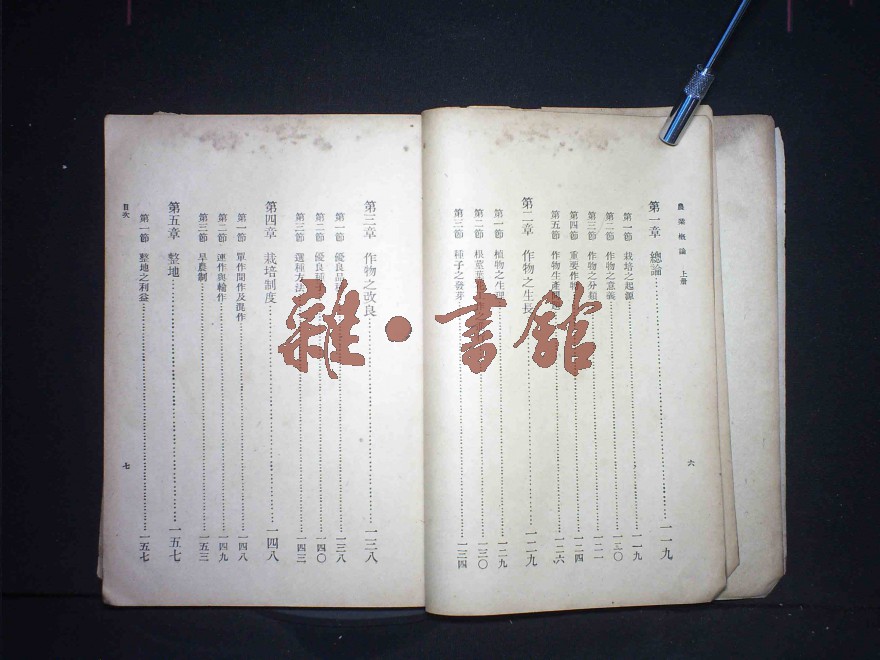 農業概論　上册
六
第一章　總論………一一九
第一節　栽培之起源………一一九
第二節　作物之意義………一二〇
第三節　作物之分類………一二二
第四節　重要作物………一二四
第五節　作物生產………一二六
第二章　作物之生長………一二九
第一節　植物之生………一二九
第二節　根莖葉………一三〇
第三節　種子之發芽………一三四
第三章　作物之改良………一三八
第一節　優良品………一三八
第二節　優良種………一四〇
第三節　選種方法………一四三
第四章　栽培制度………一四八
第一節　單作間作及混作………一四八
第二節　連作與輪作………一四九
第三節　旱農制………一五三
第五章　整地………一五七
第一節　整地之利益………一五七
目次
七
雜·書館